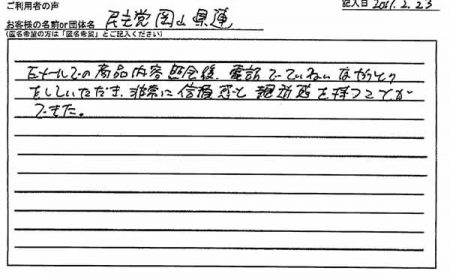 ご利用者の声
記入日 2011.2.23
お客様の名前or団体名 民主党岡山県連
(匿名希望の方は「匿名希望」とご記入ください)
Eメールでの商品内容照会後、電話でていねいなやりとり
をしていただき、非常に信頼感と親近感を持つことが
できた。